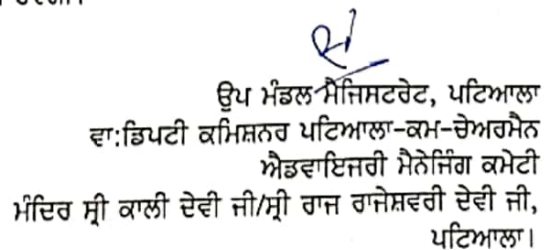 ਉਪ ਮੰਡਲ ਮੈਜਿਸਟਰੇਟ, ਪਟਿਆਲਾ
ਵਾ:ਡਿਪਟੀ ਕਮਿਸ਼ਨਰ ਪਟਿਆਲਾ-ਕਮ-ਚੇਅਰਮੈਨ
ਐਡਵਾਇਜਰੀ ਮੈਨੇਜਿੰਗ ਕਮੇਟੀ
ਮੰਦਿਰ ਸ੍ਰੀ ਕਾਲੀ ਦੇਵੀ ਜੀ/ਸ੍ਰੀ ਰਾਜ ਰਾਜੇਸ਼ਵਰੀ ਦੇਵੀ ਜੀ,
ਪਟਿਆਲਾ।